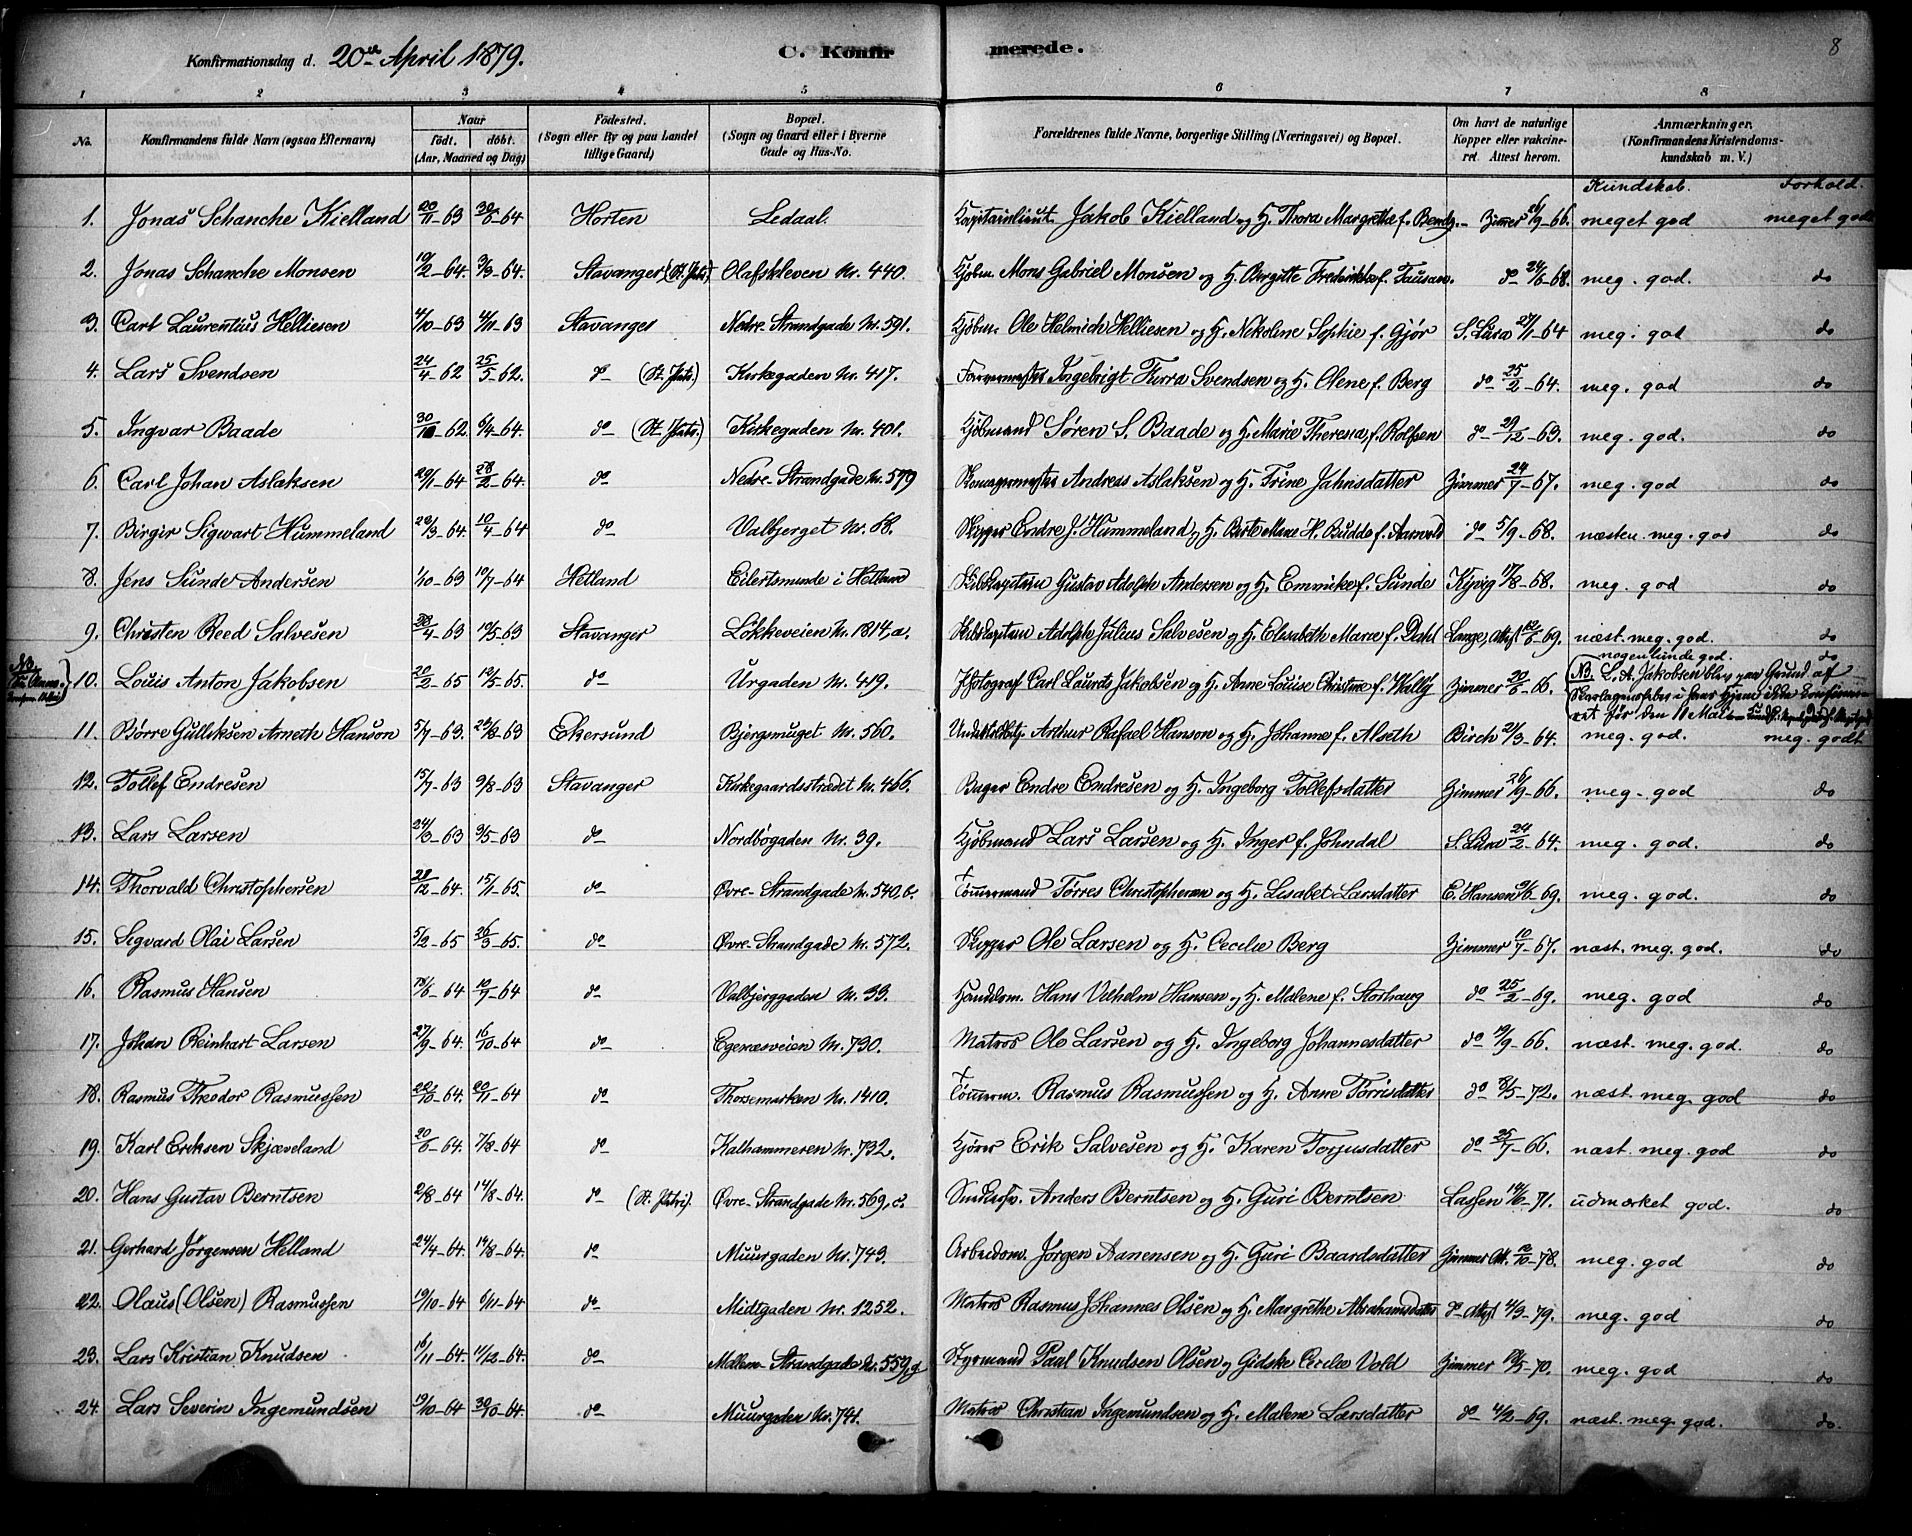 Konfirmationsdag d. 20de April 1879. C. Konfirmerede. 8
1 2 3 4 5 6 7 8
No. Konfirmandens fulde Navn (ogsaa Efternavn) Naar født. døbt. (Aar, Maaned og Dag) Fødested. (Sogn eller By og paa Landet tillige Gaard) Bopæl. (Sogn og Gaard eller i Byerne Gade og Hus-No. Forældrenes fulde Navne, borgerlige Stilling (Næringsvei) og Bopæl. Om havt de naturlige Kopper eller vakcineret. Attest herom. Anmærkninger. (Konfirmandens Kristendomskundskab m. V.)
Kundskab. Forhold.
1. Jonas Schanche Kielland 20/11-63 30/5-64 Horten Ledaal. Kapitainlieut Jakob Kielland og H. Thora Margrethe f. Bentz. Zimmer 26/9-66. meget god meget godt
2. Jonas Schanche Monsen 19/2-64. 3/9-64. Stavanger (St. Petri) Olafskleven Nr. 440. Kjøbm. Mons Gabriel Monsen og H. Birgitte Fredrikke f. do 24/6-68. meg. god. do
3. Carl Laurentius Helliesen 4/10-63 4/11-63 Stavanger Nedre Strandgade Nr. 591. Kjøbm. Ole Helmich Helliesen og H. Nikoline Sophie f. Gjør S. Lura 27/1-64 meg. god do
4. Lars Svendsen 24/4-62 25/5-62. do (St. Petri.) Kirkegaden Nr. 417. Ingebrigt Furra Svendsen og H. Olene f. Berg do 25/2-64. meg. god do
5. Ingvar Baade 30/10-62. 6/4-64. do (St. Petri.) Kirkegaden Nr. 401. Kjøbmand Søren S. Baade og H. Marie Theresia f. Rolfsen do 29/12-63. meg. god. do
6. Carl Johan Aslaksen 29/1-64 28/2-64. do Nedre Strandgade Nr. 579 Skomagermester Andreas Aslaksen og H. Trine Jahnsdatter Zimmer 24/7-67. meg. god do
7. Birgir Sigwart Hummeland 28/3-64. 10/4-64 do Valbjerget Nr. 68. Skipper Endre J. Hummeland og H. Berte Marie H. Budde f. do 5/9-68. næsten meg. god do
8. Jens Sunde Andersen 1/10-63 10/7-64 Hetland Eilertsminde i Hetland Skibskaptain Gustav Adolph Andersen og H. Emmicke f. Sunde Kjvig 17/8-68. meg. god do
9. Christen Reed Salvesen 28/4-63 10/5-63 Stavanger Løkkeveien Nr. 1814, a. Skibskaptain Adolph Julius Salvesen og H. Elisabeth Marie f. Dahl Lange, Attest 12/6-69. næst. meg. god. do
10. Louis Anton Jakobsen 20/2-65 12/5-65. do Urgaden Nr. 419. Fotograf Carl Laurits Jakobsen og H. Anne Louise Christine f. Wallø Zimmer 20/6-66. nogenlunde god. do
NB. L. A. Jakobsen blev paa Grund af
Skarlagensfeber i hans Hjem ikke konfirmeret
før den 11 Mai
11. Børre Gulleksen Arneth Hanson 5/7-63. 23/8-63 Ekersund Bjergsmuget Nr. 560. Arthur Rafael Hanson og H. Johanne f. Alseth Birch 21/3-64. meg. god. meg. godt
12. Tollef Endresen 15/7-63 9/8-63 Stavanger Kirkegaardsstrædet Nr. 466. Bager Endre Endresen og H. Ingeborg Tollefsdatter Zimmer 26/9-66. meg. god do
13. Lars Larsen 24/3-63 3/5-63 do Nordbøgaden Nr. 39. Kjøbmand Lars Larsen og H. Inger f. Johndal S. Lura 24/2-64. meg. god. do
14. Thorvald Christophersen 28/12-64. 15/1-65. do Øvre Strandgade Nr. 540, b. Tømmermand Tørres Christophersen og H. Lisabet Larsdatter E. Hansen 6/6-69. meg. god. do
15. Sigvard Olai Larsen 5/2-65 26/3-65. do Øvre Strandgade Nr. 572. Skipper Ole Larsen og H. Cecilie Berg Zimmer 10/7-67. næst. meg. god. do
16. Rasmus Hansen 18/6-64 10/7-64 do Valbjerggaden Nr. 33. Handelsm. Hans Vilhelm Hansen og H. Malene f. Storhaug do 25/2-69. meg. god do
17. Johan Reinhart Larsen 27/9-64. 16/10-64 do Egenæsveien Nr. 730. Matros Ole Larsen og H. Ingeborg Johannesdatter do 19/9-66. næst. meg. god. do
18. Rasmus Theodor Rasmussen 28/10-64. 20/11-64 do Thorsemarken Nr. 1410. Tømmerm. Rasmus Rasmussen og H. Anne Torrisdatter do 8/5-72. næst. meg. god do
19. Karl Eriksen Skjæveland 20/6-64. 7/8-64 do Kalhammeren Nr. 732. Kjører Erik Salvesen og H. Karen Torjusdatter do 25/7-66. næst. meg. god do
20. Hans Gustav Berntsen 2/8-64 14/8-64. do (St. Petri). Øvre Strandgade Nr. 569, c. Anders Berntsen og H. Guri Berntsen Lassen 14/6-71. udmærket god. do
21. Gerhard Jørgensen Helland 24/4-64. 14/8-64. do Muurgaden Nr. 743. Arbeidsm. Jørgen Aanensen og H. Guri Baardsdatter Zimmer Att. 12/10-78. meg. god do
22. Olaus (Olsen) Rasmussen 19/10-64 6/11-64 do Midtgaden Nr. 1252. Matros Rasmus Johannes Olsen og H. Margrethe Abrahamsdatter do Attest 4/3-79. meg. god do
23. Lars Kristian Knudsen 16/11-64. 11/12-64. do Mellem Strandgade Nr. 559, g Styrmand Paul Knudsen Olsen og Gidske Cecilie Vold Zimmer 19/5-70. meg. god do
24. Lars Severin Ingemundsen 19/10-64. 30/10-64. do Muurgaden Nr. 741. Matros Christian Ingemundsen og H. Malene Larsdatter do 4/2-69. næst. meg. god. do.